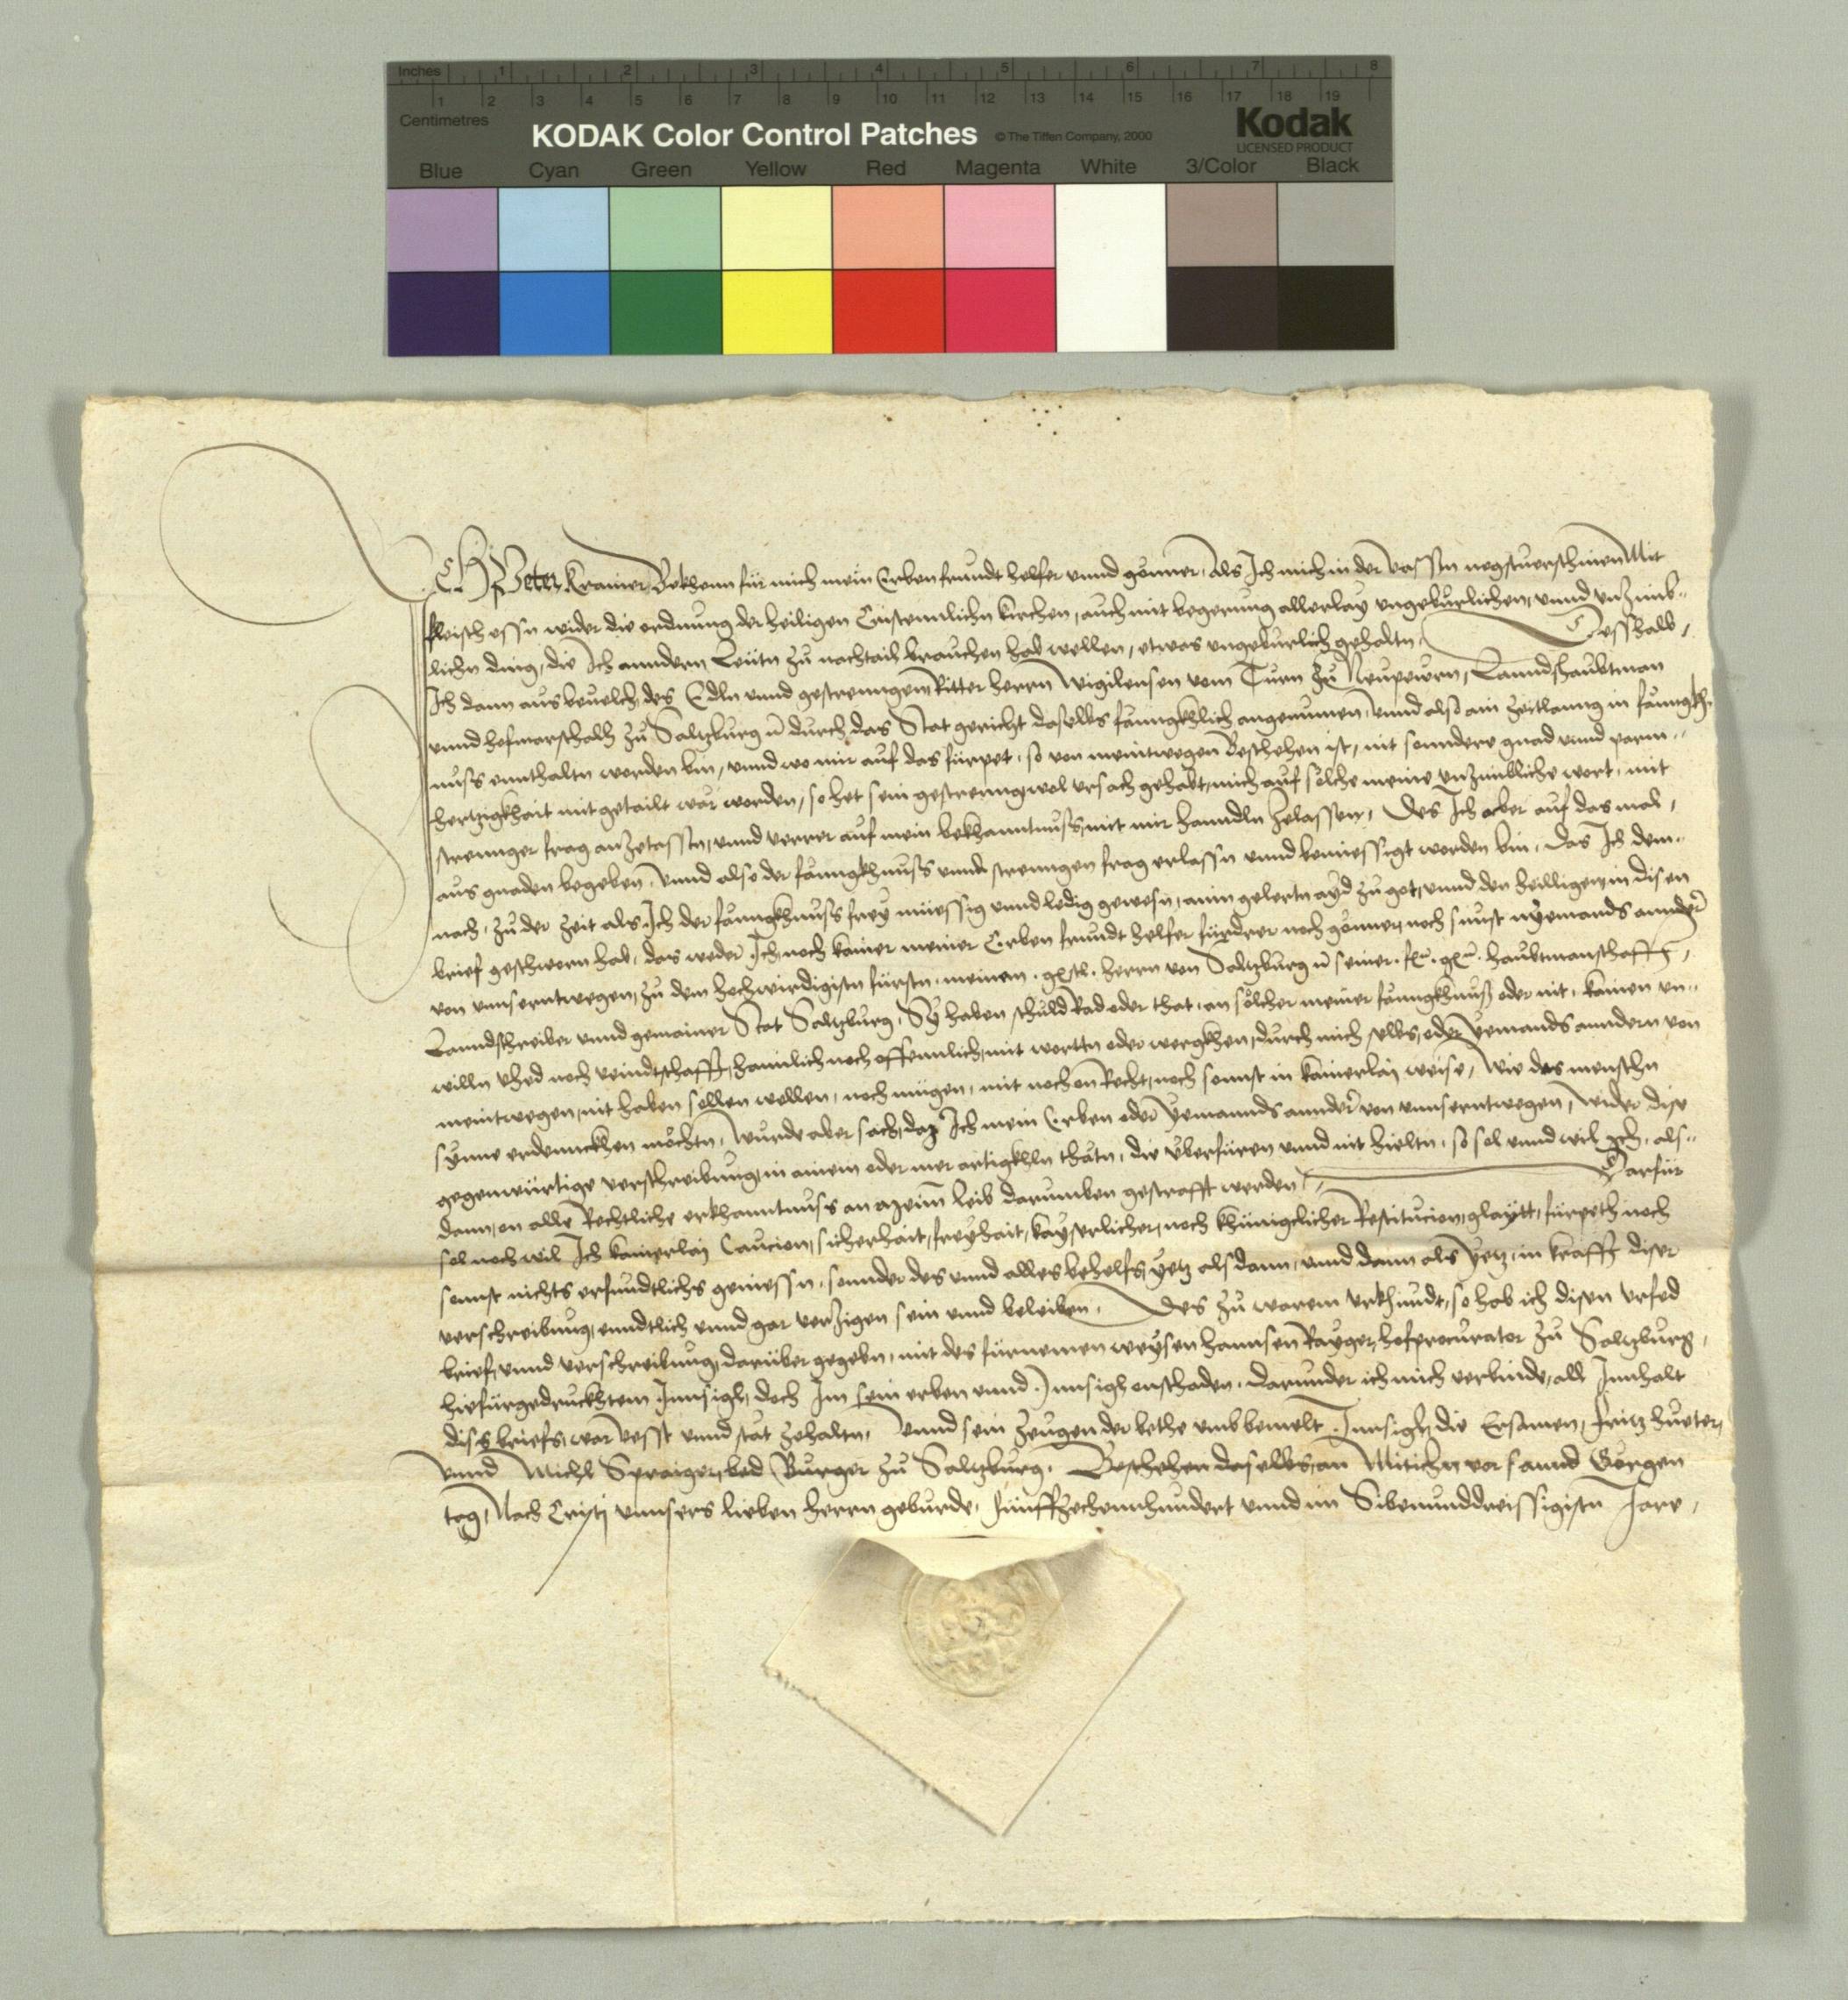 Inches 1 2 3 4 5 6 7 8
1 2 3 4 5 6 7 8 9 10 11 12 13 14 15 16 17 18 19
Centimetres
KODAK Color Control Patches © The Tiffen Company, 2000 Kodak
LICENSED PRODUCT
Blue Cyan Green Yellow Red Magenta White 3/Color Black
ICH Peter Kramer Bekhenn für mich mein Erben freundt helfer vnnd gönner, Als Ich mich in der vassten negstuerschinen Mit
fleisch essn wider die ordnung der heiligen Cristennlichn kirchen, auch mit begerung allerlay vngeburlichen, vnnd vnzimb-
lichn ding, die Ich anndern Leütn zu nachtail brauchen hab wellen, etwas vngeburlich gehaltn, Desshalb,
Ich dann aus beuelch, des Edln vnnd gestrenngen Ritter herrn Wigilensen vom Turn zu Neupewrn, Lanndshaubtman
vnnd hofmarschalh zu Saltzburg durch das Stat gericht daselbs fännngkhlich angenumen, vnnd also ain zeitlanng in fännngkh-
nuss ennthaltn worden bin, vnnd wo mir auf das fürpet, so von meintwegen Beschehen ist, nit sonndere gnad vnnd parm-
hertzigkhait mitgetailt wär worden, so het sein gestrenng wol vrsach gehabt, mich auf solche meine vnzimbliche wort, mit
strennger frag antzetassten, vnnd verrer auf mein bekhanntnuss, mit mir hanndln zelassen, Des Ich aber auf das mal,
aus gnaden begeben, vnnd also der fännngkhnuss vnnd strenngen frag erlassn vnnd bemiessigt worden bin, Das Ich dem-
nach, zu der zeit als Ich der fännngkhnuss frey müessig vnnd ledig gewesn, ainn gelertn ayd zu got, vnnd den heilligen, in disen
brief geschworn hab, das weder Ich, noch kainer meiner Erben freundt helfer fürdrer noch gönner, noch sunst nyemands annder
von vnnserntwegen, zu dem hochwirdigistn fürstn, meinem g herrn von Saltzburg seiner haubtmanschafft,
Lanndschreiber vnnd gemainer Stat Saltzburg, Sy haben schuld Rad oder that, an solcher meiner fännngkhnuß oder nit, kainen vn-
willn vhed noch veindtschafft, haimlich noch offennlich, mit wortten oder wergkhen, durch mich selbs, oder yemands anndern von
meintwegen, nit haben sollen wellen, noch mügen, mit noch on Recht, noch sonnst in kainerlay weise, Wie das menschn
synne erdennckhen möchtn, Wurde aber sach, daz Ich mein Erben oder yemannds annder von vnnserntwegen, Wider dise
gegenwürtige verschreibung, in ainem oder mer artigkhln thätn, die vberfüren vnnd nit hieltn, so sol vnnd wil Ich, als-
dann, on alle Rechtliche erkhanntnuss an meinm leib darumben gestrafft werden, Darfür
sol noch wil Ich kainerlay Caucion, sicherhait, freyhait, kayserlicher, noch khüniglicher Restitucion, glaytt, fürpeth noch
sonnst nichts erfundtlichs geniessn, sonnder des vnnd alles behelfs, yetz als dann, vnnd dann als yetz, in krafft diser
verschreibung, enndtlich vnnd gar verzigen sein vnnd beleiben, Des zu warem vrkhundt, so hab ich disen vrfed
brief, vnnd verschreibung, darüber gegebn, mit des fürnemen weysen hannsen Rayger, hofprocurator zu Saltzburg,
hiefürgedruckhtem Innsigh, doch Im sein erben vnnd Innsigh onschaden, darunder ich mich verbinde, all Innhalt
diss briefs, war vesst vnnd stät zehaltn, Vnnd sein zeugen der bethe vmb bemelt Innsigh, die Ersamen, fritz hueter,
vnnd Michl Sprainger, bed Burger zu Saltzburg, Beschehen daselbs, an Mitichn vor sannd Görgen
tag, Nach Cristj vnnsers lieben herrn geburde, fünffzehennhundert vnnd im Sibenunddreissigistn Jare,